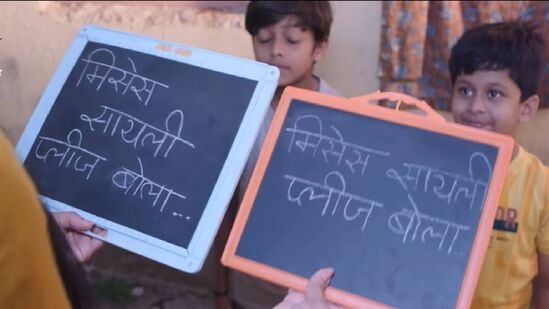 मिसेस
सायली
प्लीज बोला...
मिसेस सायली
प्लीज बोला..